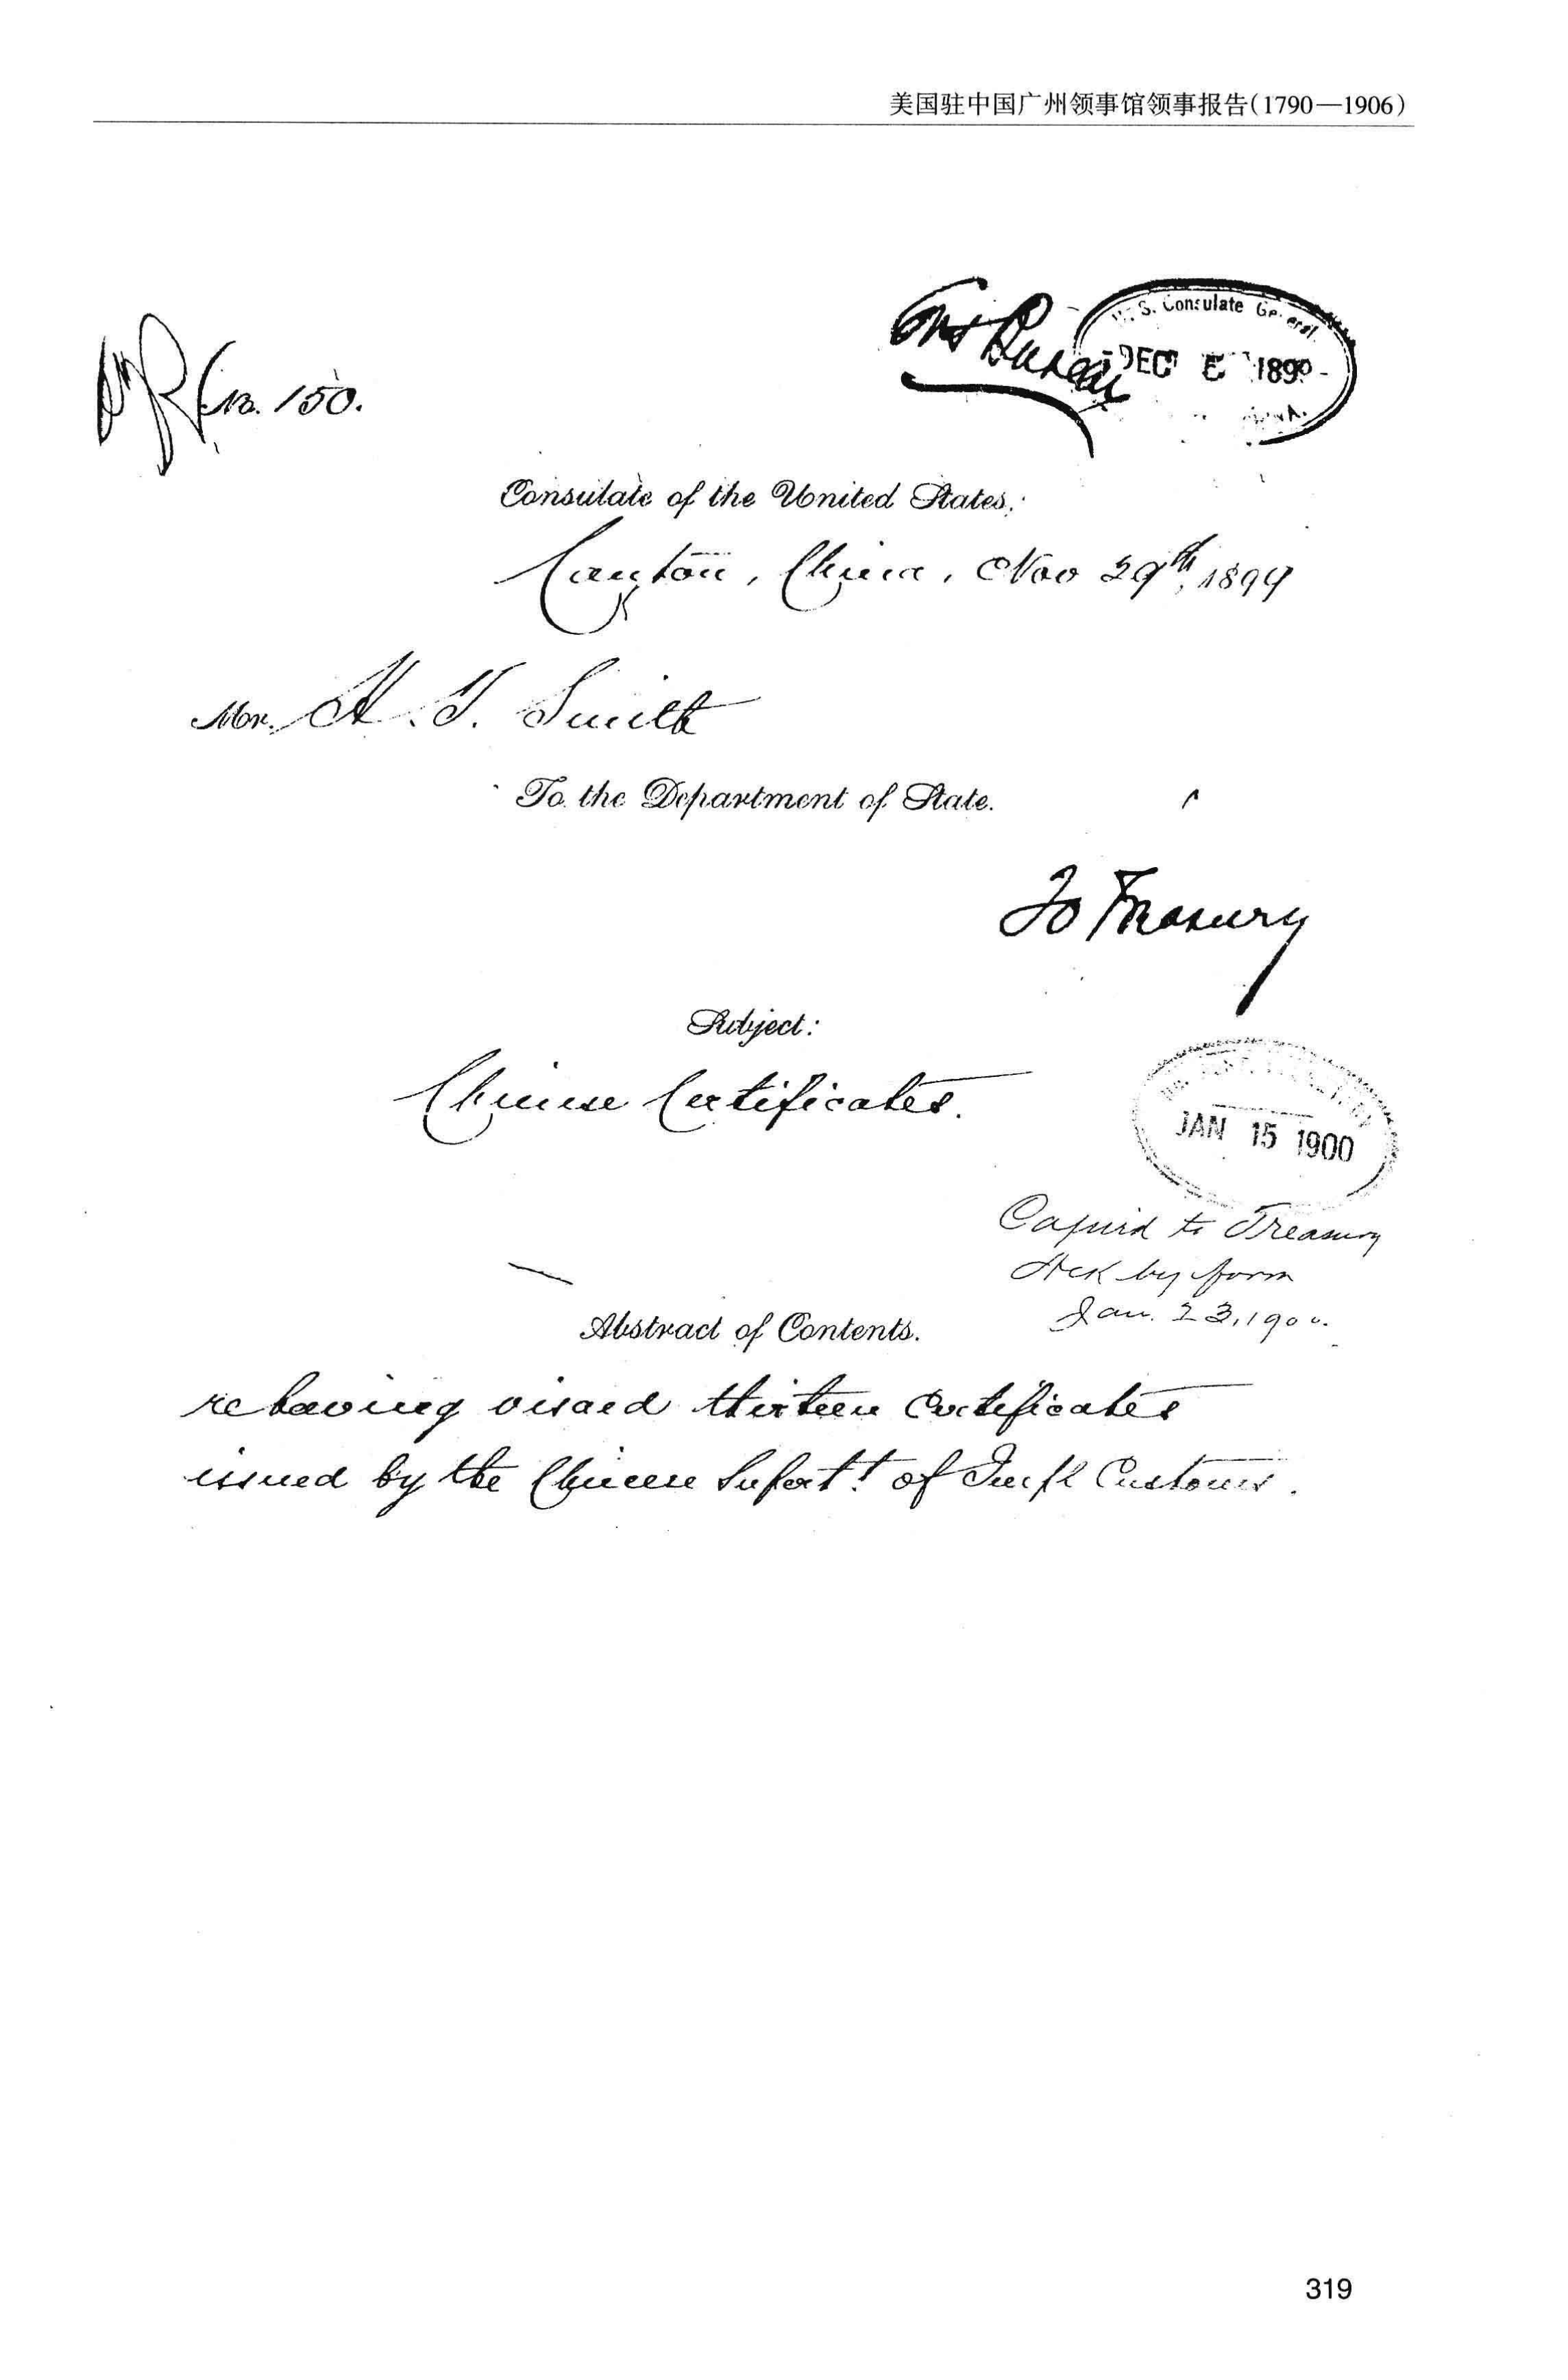 美国驻中国广州领事馆领事报告(1790—1906)
Cons Bureau
U. S. Consulate General
DEC 1899
No. 150.
Consulate of the United States,
Canton, China, Nov 29th, 1899
Mr. H. F. Smith
To the Department of State.
To Treasury
Subject:
Chinese Certificates.
JAN 15 1900
to Treasury
Ack by form
Jan. 23, 1900.
Abstract of Contents.
re having visaed thirteen Certificates
issued by the Chinese Supert! of Customs.
319